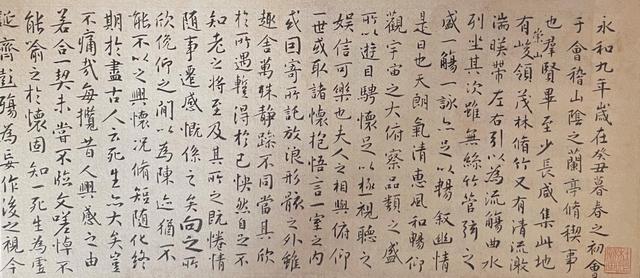 永和九年歲在癸丑暮春之初會
于會稽山陰之蘭亭脩稧事
也羣賢畢至少長咸集此地
有崇山峻領茂林脩竹又有清流激
湍暎帶左右引以為流觴曲水
列坐其次雖無絲竹管弦之
盛一觴一詠亦足以暢叙幽情
是日也天朗氣清惠風和暢仰
觀宇宙之大俯察品類之盛
所以遊目騁懷足以極視聽之
娛信可樂也夫人之相與俯仰
一世或取諸懷抱悟言一室之內
或因寄所託放浪形骸之外雖
趣舍萬殊静躁不同當其欣
於所遇暫得於己怏然自足不
知老之將至及其所之既惓情
隨事遷感慨係之矣向之所
欣俛仰之閒以為陳迹猶不
能不以之興懷況脩短隨化終
期於盡古人云死生亦大矣豈
不痛哉每攬昔人興感之由
若合一契未嘗不臨文嗟悼不
能喻之於懷固知一死生為虛
誕齊彭殤為妄作後之視今